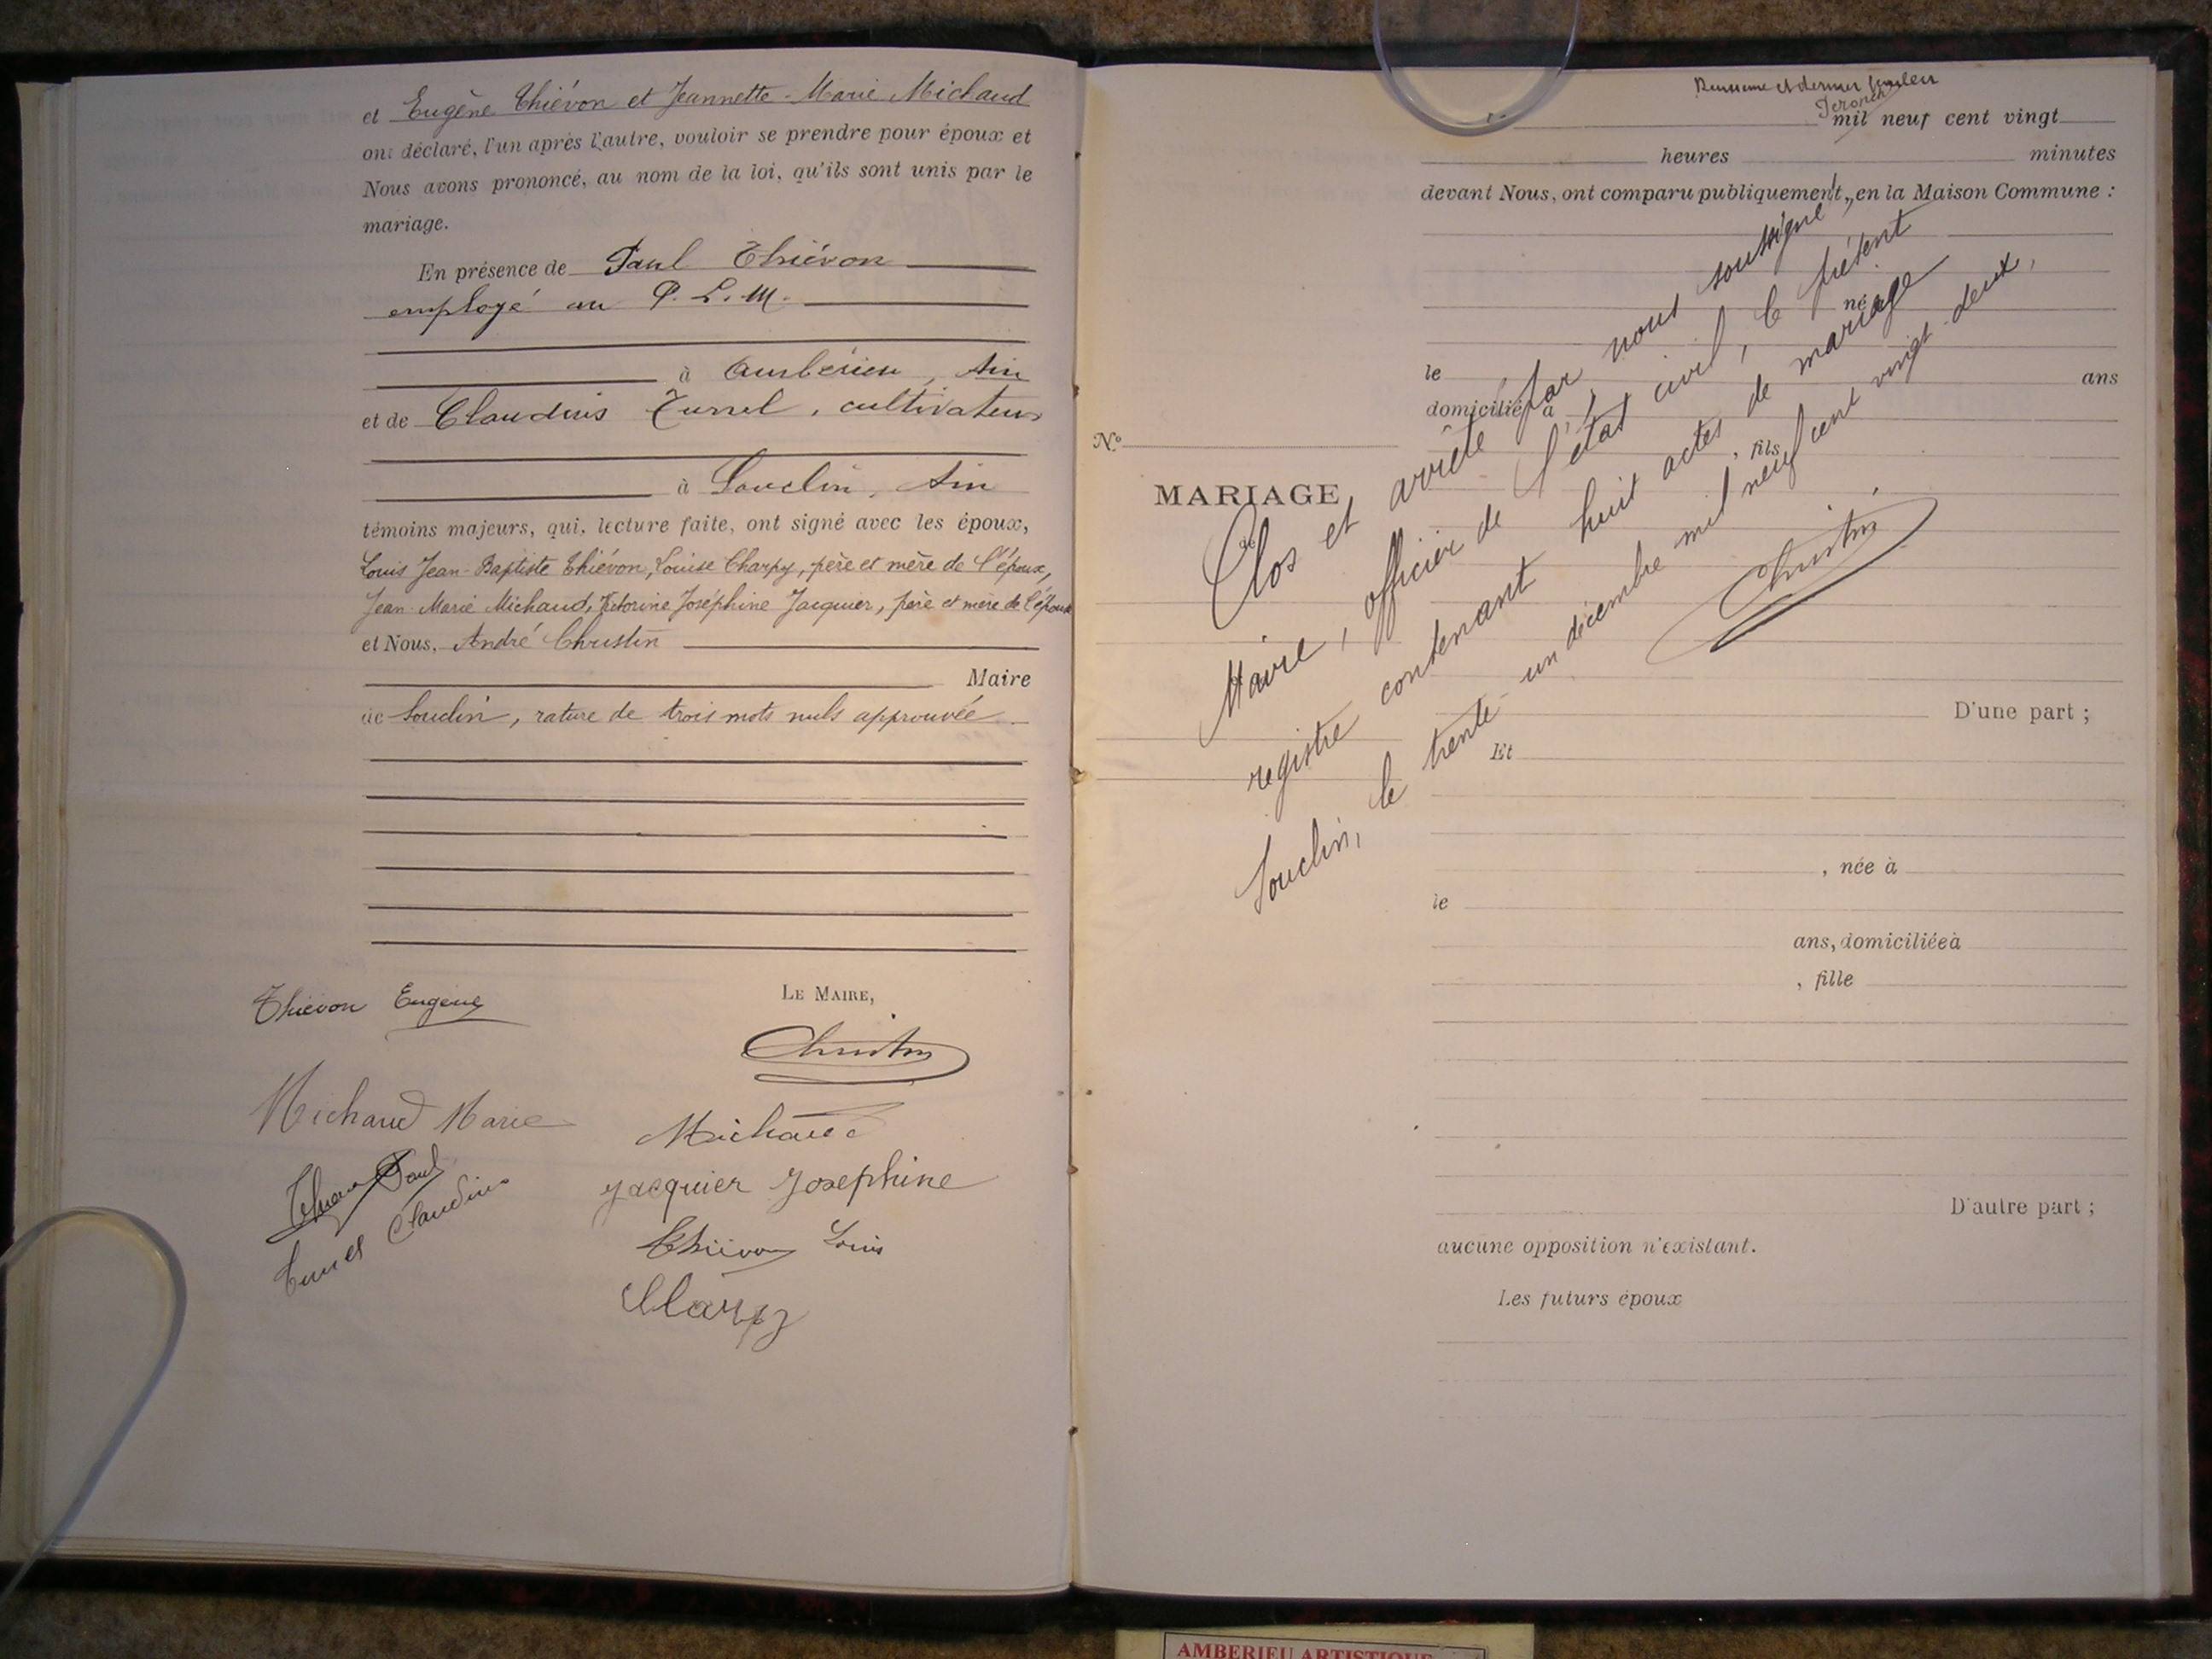 et Eugène Thiévon et Jeannette-Marie Michaud
ont déclaré, l'un après l'autre, vouloir se prendre pour époux et
Nous avons prononcé, au nom de la loi, qu'ils sont unis par le
mariage.
En présence de Paul Thiévon
employé au P.L.M.
à Ambérieu, Ain
et de Claudius Tunnel, cultivateur
à Souclin, Ain
témoins majeurs, qui, lecture faite, ont signé avec les époux,
Louis Jean-Baptiste Thiévon, Louise Charpy, père et mère de l'époux,
Jean Marie Michaud, Victorine Joséphine Jacquier, père et mère de l'épouse
et Nous, André Christin
Maire
de Souclin, rature de trois mots nuls approuvée
Thiévon Eugène
LE MAIRE,
Christin
Michaud Marie
Michaud
Paul
Jacquier Josephine
Claudius
Thiévon Louis
Charpy
Deuxième et dernier feuillet
mil neuf cent vingt
heures minutes
devant Nous, ont comparu publiquement, en la Maison Commune :
né à
le ans
domicilié à
, fils
N°
MARIAGE
de
Clos et arrêté par nous soussigné,
Maire, officier de l'état civil, le présent
registre contenant huit actes de mariage
Souclin, le trente-un décembre mil neuf cent vingt-deux,
Christin
D'une part ;
Et
, née à
le
ans, domiciliée à
, fille
D'autre part ;
aucune opposition n'existant.
Les futurs époux
AMBERIEU ARTISTIQUE